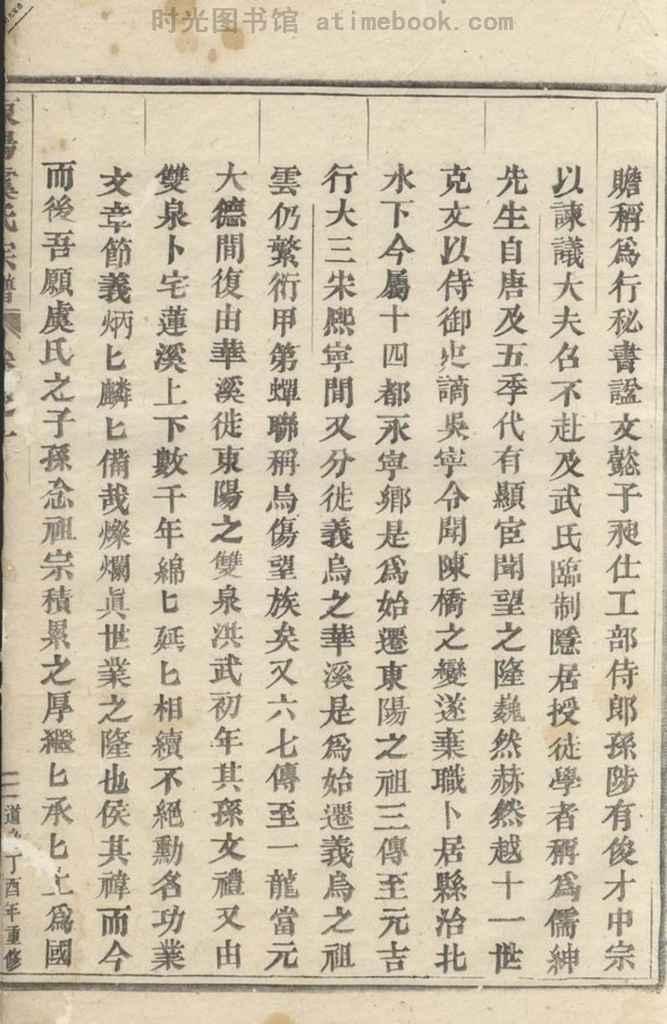 时光图书馆 atimebook.com
贍稱爲行秘書諡文懿子昶仕工部侍郎孫陟有俊才中宗
以諫議大夫召不赴及武氏臨制隱居授徒學者稱爲儒紳
先生自唐及五季代有顯宦聞望之隆巍然赫然越十一世
克文以侍御史謫吳寧令聞陳橋之變遂棄職卜居縣治北
水下今屬十四都永寧鄉是爲始遷東陽之祖三傳至元吉
行大三宋熙寧間又分徙義烏之華溪是爲始遷義烏之祖
雲仍繁衍甲第蟬聯稱烏傷望族矣又六七傳至一龍當元
大德間復由華溪徙東陽之雙泉洪武初年其孫文禮又由
雙泉卜宅蓮溪上下數千年綿匕延匕相續不絕勳名功業
文章節義炳匕麟匕備哉燦爛眞世業之隆也侯其禕而今
而後吾願虞氏之子孫念祖宗積累之厚繼匕承匕上爲國
東陽虞氏宗譜 卷之十 二 道光丁酉年重修